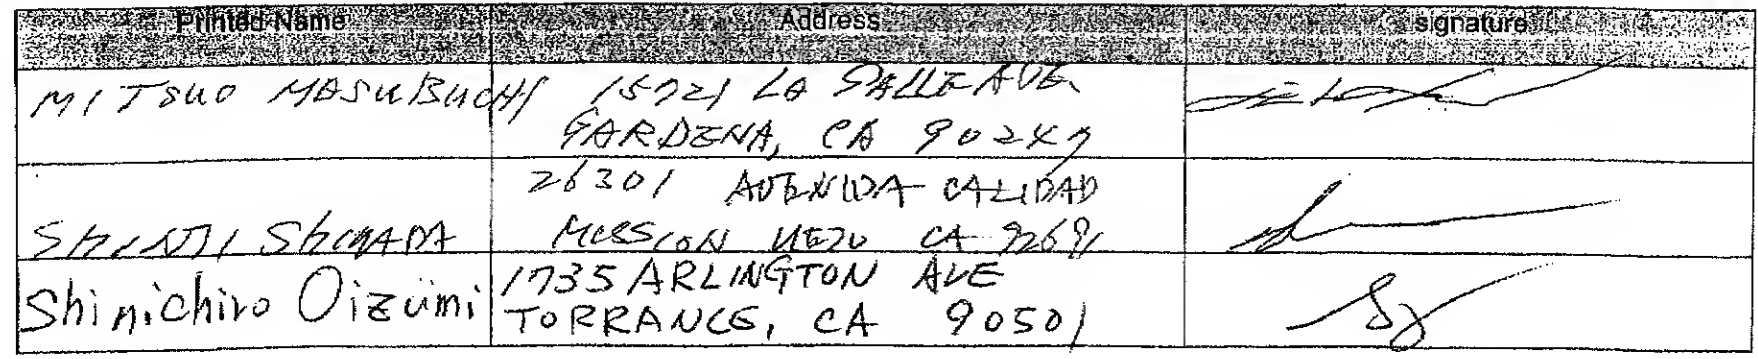 Printed Name Address signature
MITSUO MASUBUCHI 15721 LA SALLE AVE
GARDENA, CA 90247
26301 AVENIDA CALIDAD
SHINJI SHIMADA MISSION VIEJO CA 92691
Shinichiro Oizumi 1735 ARLINGTON AVE
TORRANCE, CA 90501